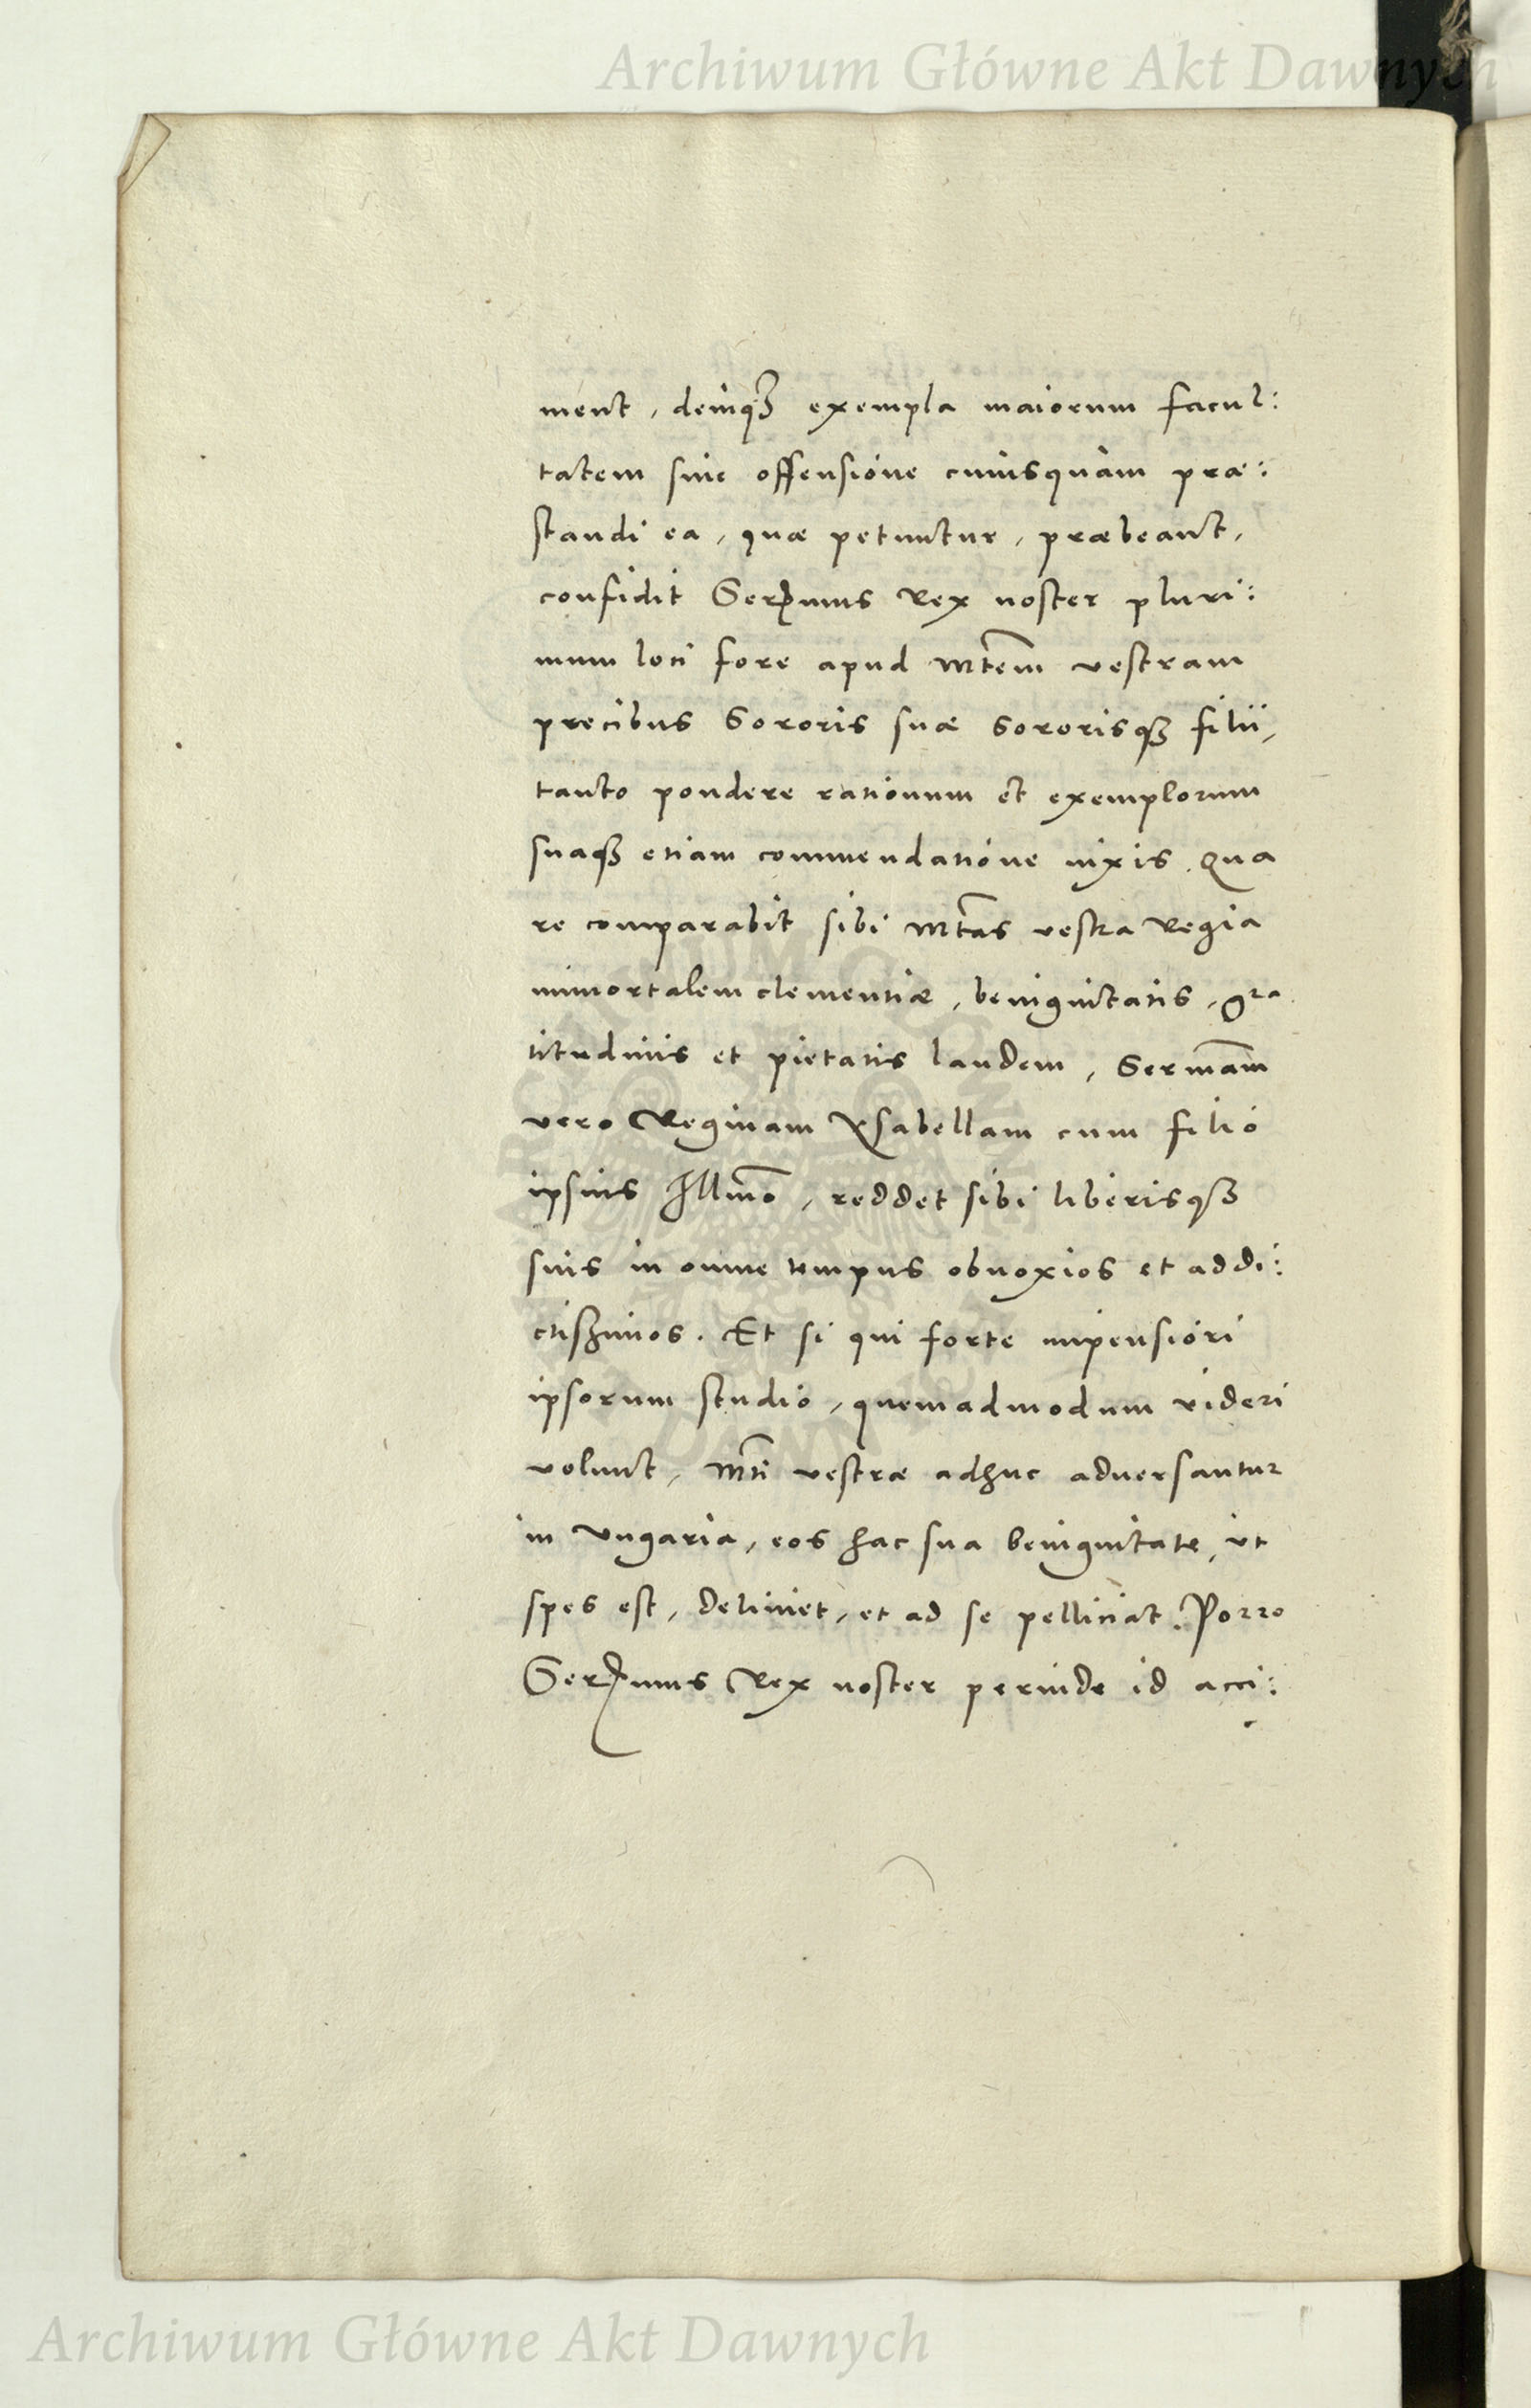 Archiwum Główne Akt Dawnych
ment, deniq́ꝫ exempla maiorum facul:
tatem sine offensione cuiusquàm præ:
standi ea, quæ petuntur, præbeant,
confidit Serenimus Rex noster pluri:
mum loci fore apud Mtem vestram
precibus Sororis suæ Sororisqꝫ filii,
tanto pondere rationum et exemplorum
suaqꝫ etiam commendatione nixis. Qua
re comparabit sibi Mtas vestra Regia
immortalem clementiæ, benignitatis, gra
titudinis et pietatis laudem, Sermam
vero Reginam Ysabellam cum filio
ipsius Illmo, reddet sibi liberisqꝫ
suis in omne tempus obnoxios et addi:
ctisζimos. Et si qui forte impensiori
ipsorum studio, quemadmodum videri
volunt, Mti vestræ adhuc adversantur
in Vngaria, eos hac sua benignitate, ut
spes est, deliniet, et ad se pelliciat. Porro
Serenimus Rex noster perinde id acci:
Archiwum Główne Akt Dawnych